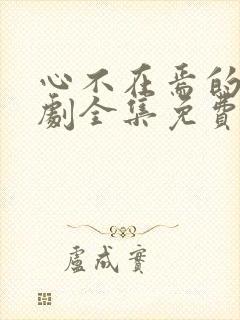 心不在焉的
劇全集免費
盧成實